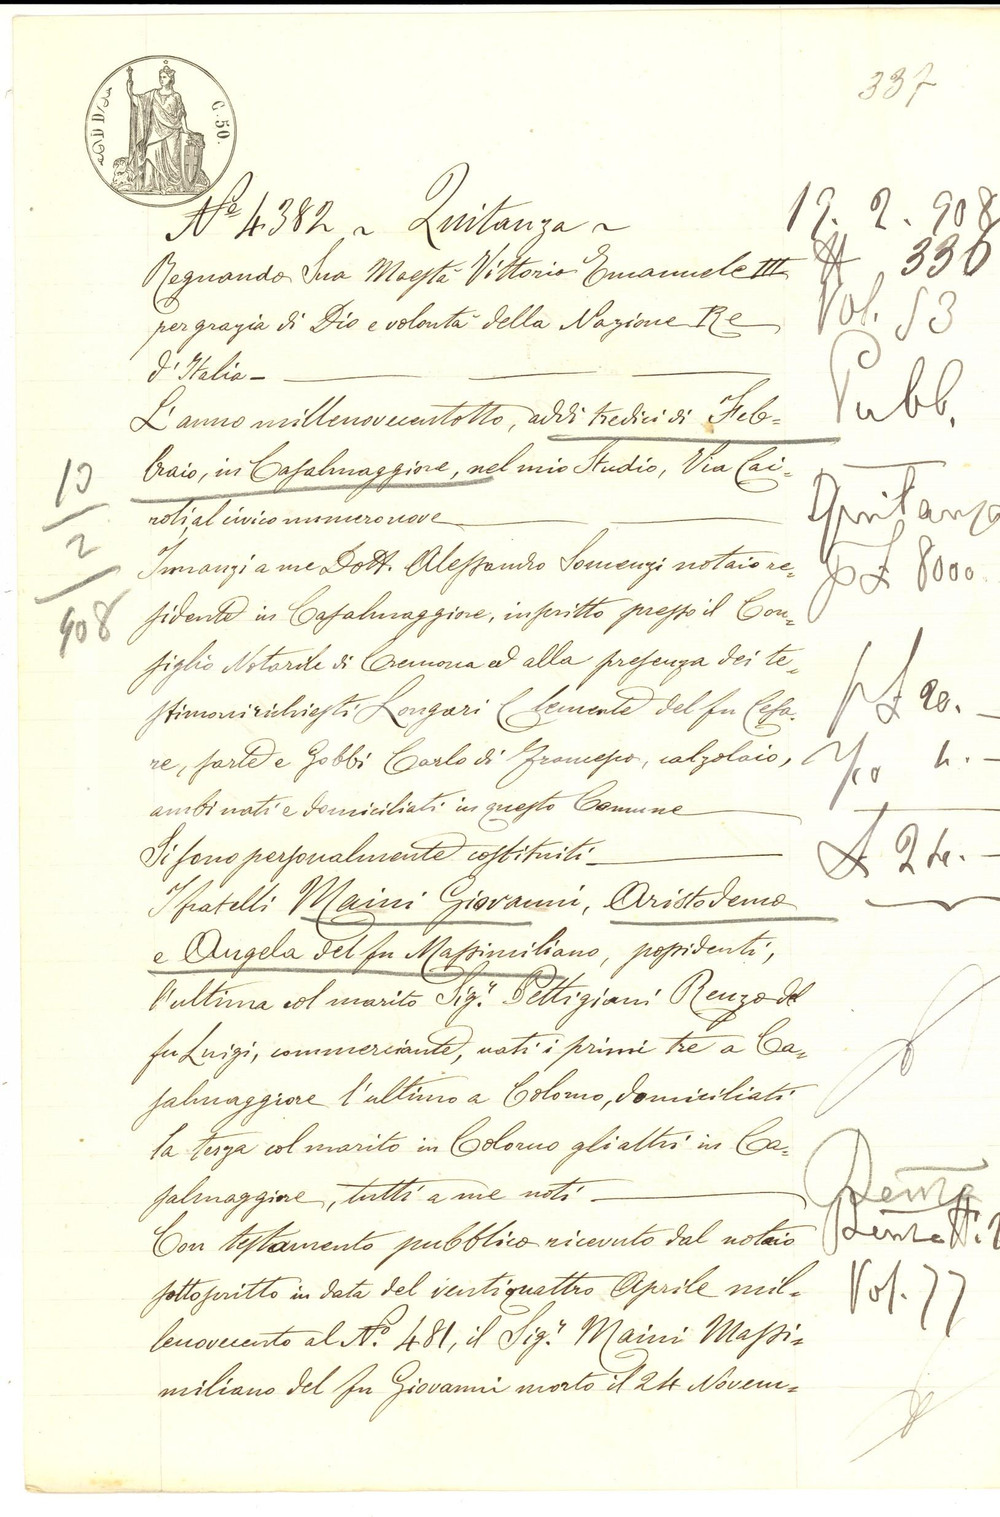 337
C. 50.
Nº 4382 ~ Quitanza ~
Regnando Sua Maestà Vittorio Emanuele III
per grazia di Dio e volontà della Nazione Re
d'Italia —
L'anno millenovecentotto, addì tredici di Feb=
braio, in Casalmaggiore, nel mio Studio, Via Cai=
roli, al civico numero nove
Innanzi a me Dott. Alessandro Somenzi notaio re=
sidente in Casalmaggiore, inscritto presso il Con=
siglio Notarile di Cremona ed alla presenza dei te=
stimoni richiesti Longari Clemente del fu Cesa=
re, sarte e Gobbi Carlo di Francesco, calzolaio,
ambi nati e domiciliati in questo Comune
Si sono personalmente costituiti
I fratelli Maini Giovanni, Aristodemo
e Angela del fu Massimiliano, possidenti,
l'ultima col marito Sig.r Pettigiani Renzo del
fu Luigi, commerciante, nati i primi tre a Ca=
salmaggiore l'ultimo a Colorno, domiciliati
la terza col marito in Colorno gli altri in Ca=
salmaggiore, tutti a me noti
Con testamento pubblico ricevuto dal notaio
sottoscritto in data del ventiquattro Aprile mil=
lenovecento al Nº 481, il Sig.r Maini Massi=
miliano del fu Giovanni morto il 24 Novem=
13
/
2
/
908
19. 2. 908
# 336
Vol. 53
Pubb.
Quitanza
p £ 8000
£ 20. —
4. —
£ 24. —
Vol. 77